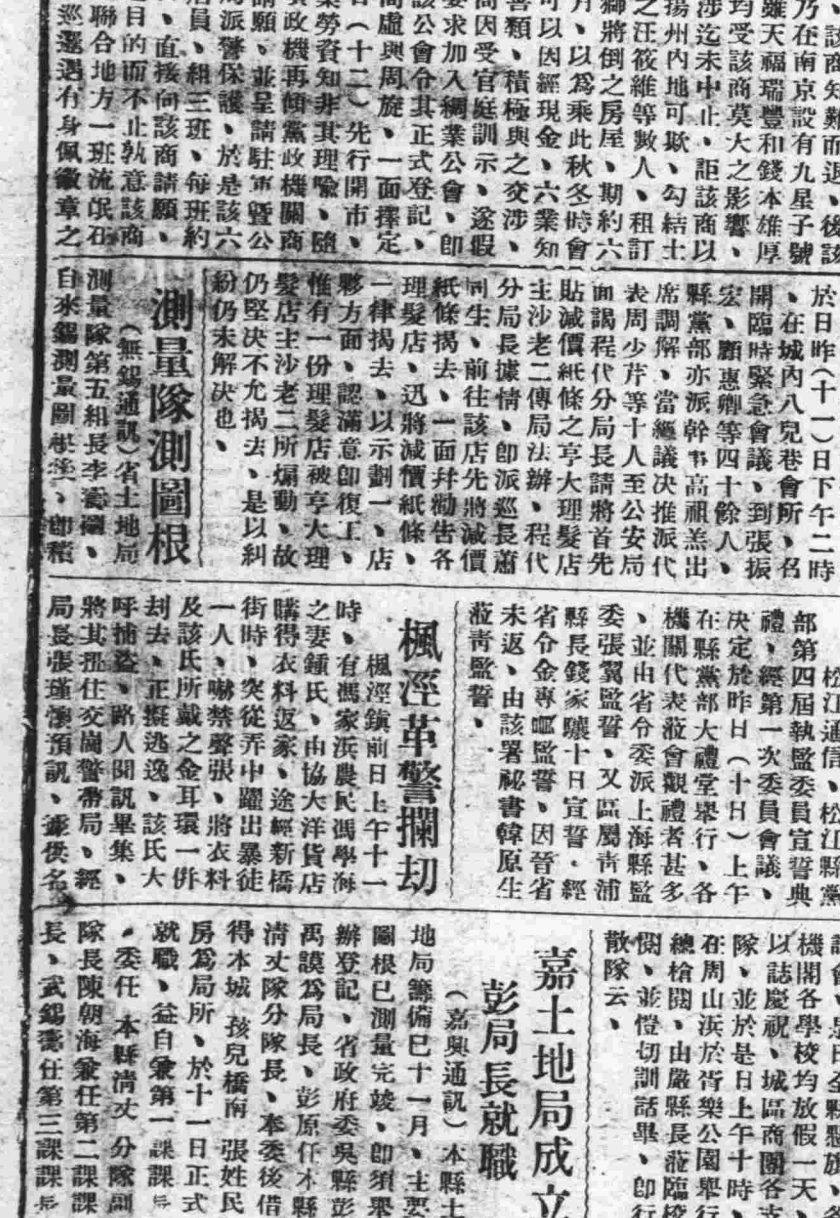 、該商知難而退、後該
乃在南京設有九星子號
雖天福瑞豐和錢本雄厚
均受該商莫大之影響、
涉迄未中止、詎該商以
揚州內地可欺、勾結土
之汪筱維等數人、租訂
獅將倒之房屋、期約六
月、以爲乘此秋冬時會
可以因經現金、六業知
善類、積極與之交涉、
商因受官庭訓示、遂假
要求加入綢業公會、卽
該公會令其正式登記、
商虛與周旋、一面擇定
日(十二)先行開市、
業勞資知非其理喻、隨
項政機再傾黨政機關商
請願、並呈請駐軍暨公
局派警保護、於是該六
店員、組三班、每班約
、直接向該商請願、
目的而不止孰意該商
聯合地方一班流氓在
巡邏遇有身佩徽章之
於日昨(十一)日下午二時
、在城內八兒巷會所、名
開臨時緊急會議、到張振
宏、顧惠卿等四十餘人、
縣黨部亦派幹事高祖羔出
席調解、當經議决推派代
表周少芹等十人至公安局
面謁程代分局長請將首先
貼減價紙條之亨大理髮店
主沙老二傳局法辦、程代
分局長據情、卽派巡長蕭
同生、前往該店先將減價
紙條揭去、一面幷勸告各
理髮店、迅將減價紙條、
一律揭去、以示劃一、店
夥方面、認滿意卽復工、
惟有一份理髮店被亨大理
髮店主沙老二所煽動、故
仍堅决不允揭去、是以糾
紛仍未解决也、
測量隊測圖根
(無錫通訊)省土地局
測量隊第五組長李
自來錫測量圖根
松江通信、松江縣黨
部第四屆執監委員宣誓典
禮、經第一次委員會議、
决定於昨日(十日)上午
在縣黨部大禮堂舉行、各
機關代表蒞會觀禮者甚多
、並由省令委派上海縣監
委張翼監誓、又區屬靑浦
縣長錢家驤十日宣誓、經
省令金專監誓、因晉省
未返、由該署祕書韓原生
蒞靑監誓、
楓涇革警攔刧
楓涇鎭前日上午十一
時、有馮家浜農民馮學海
之妻鍾氏、由協大洋貨店
購得衣料返家、途經新橋
街時、突從弄中躍出暴徒
一人、嚇禁聲張、將衣料
及該氏所戴之金耳環一倂
刧去、正擬逃逸、該氏大
呼捕盜、路人聞訊畢集、
將其扭住交崗警帶局、經
局長張瑾預訊、據供名
機關各學校均放假一天、
以誌慶祝、城區商團各支
隊、並於是日上午十時、
在周山浜於胥樂公園舉行
總檢閱、由嚴縣長蒞臨校
閱、並愷切訓話畢、卽行
散隊云、
嘉土地局成立
彭局長就職
(嘉興通訊)本縣土
地局籌備已十一月、主要
圖根已測量完竣、卽須舉
辦登記、省政府委吳縣彭
禹謨爲局長、彭原任本縣
淸丈隊分隊長、奉委後借
得本城孩兒橋南張姓民
房爲局所、於十一日正式
就職、益自兼第一課課長
、委任本縣淸丈分隊副
隊長陳朝海兼任第二課課
長、武錫任第三課課長